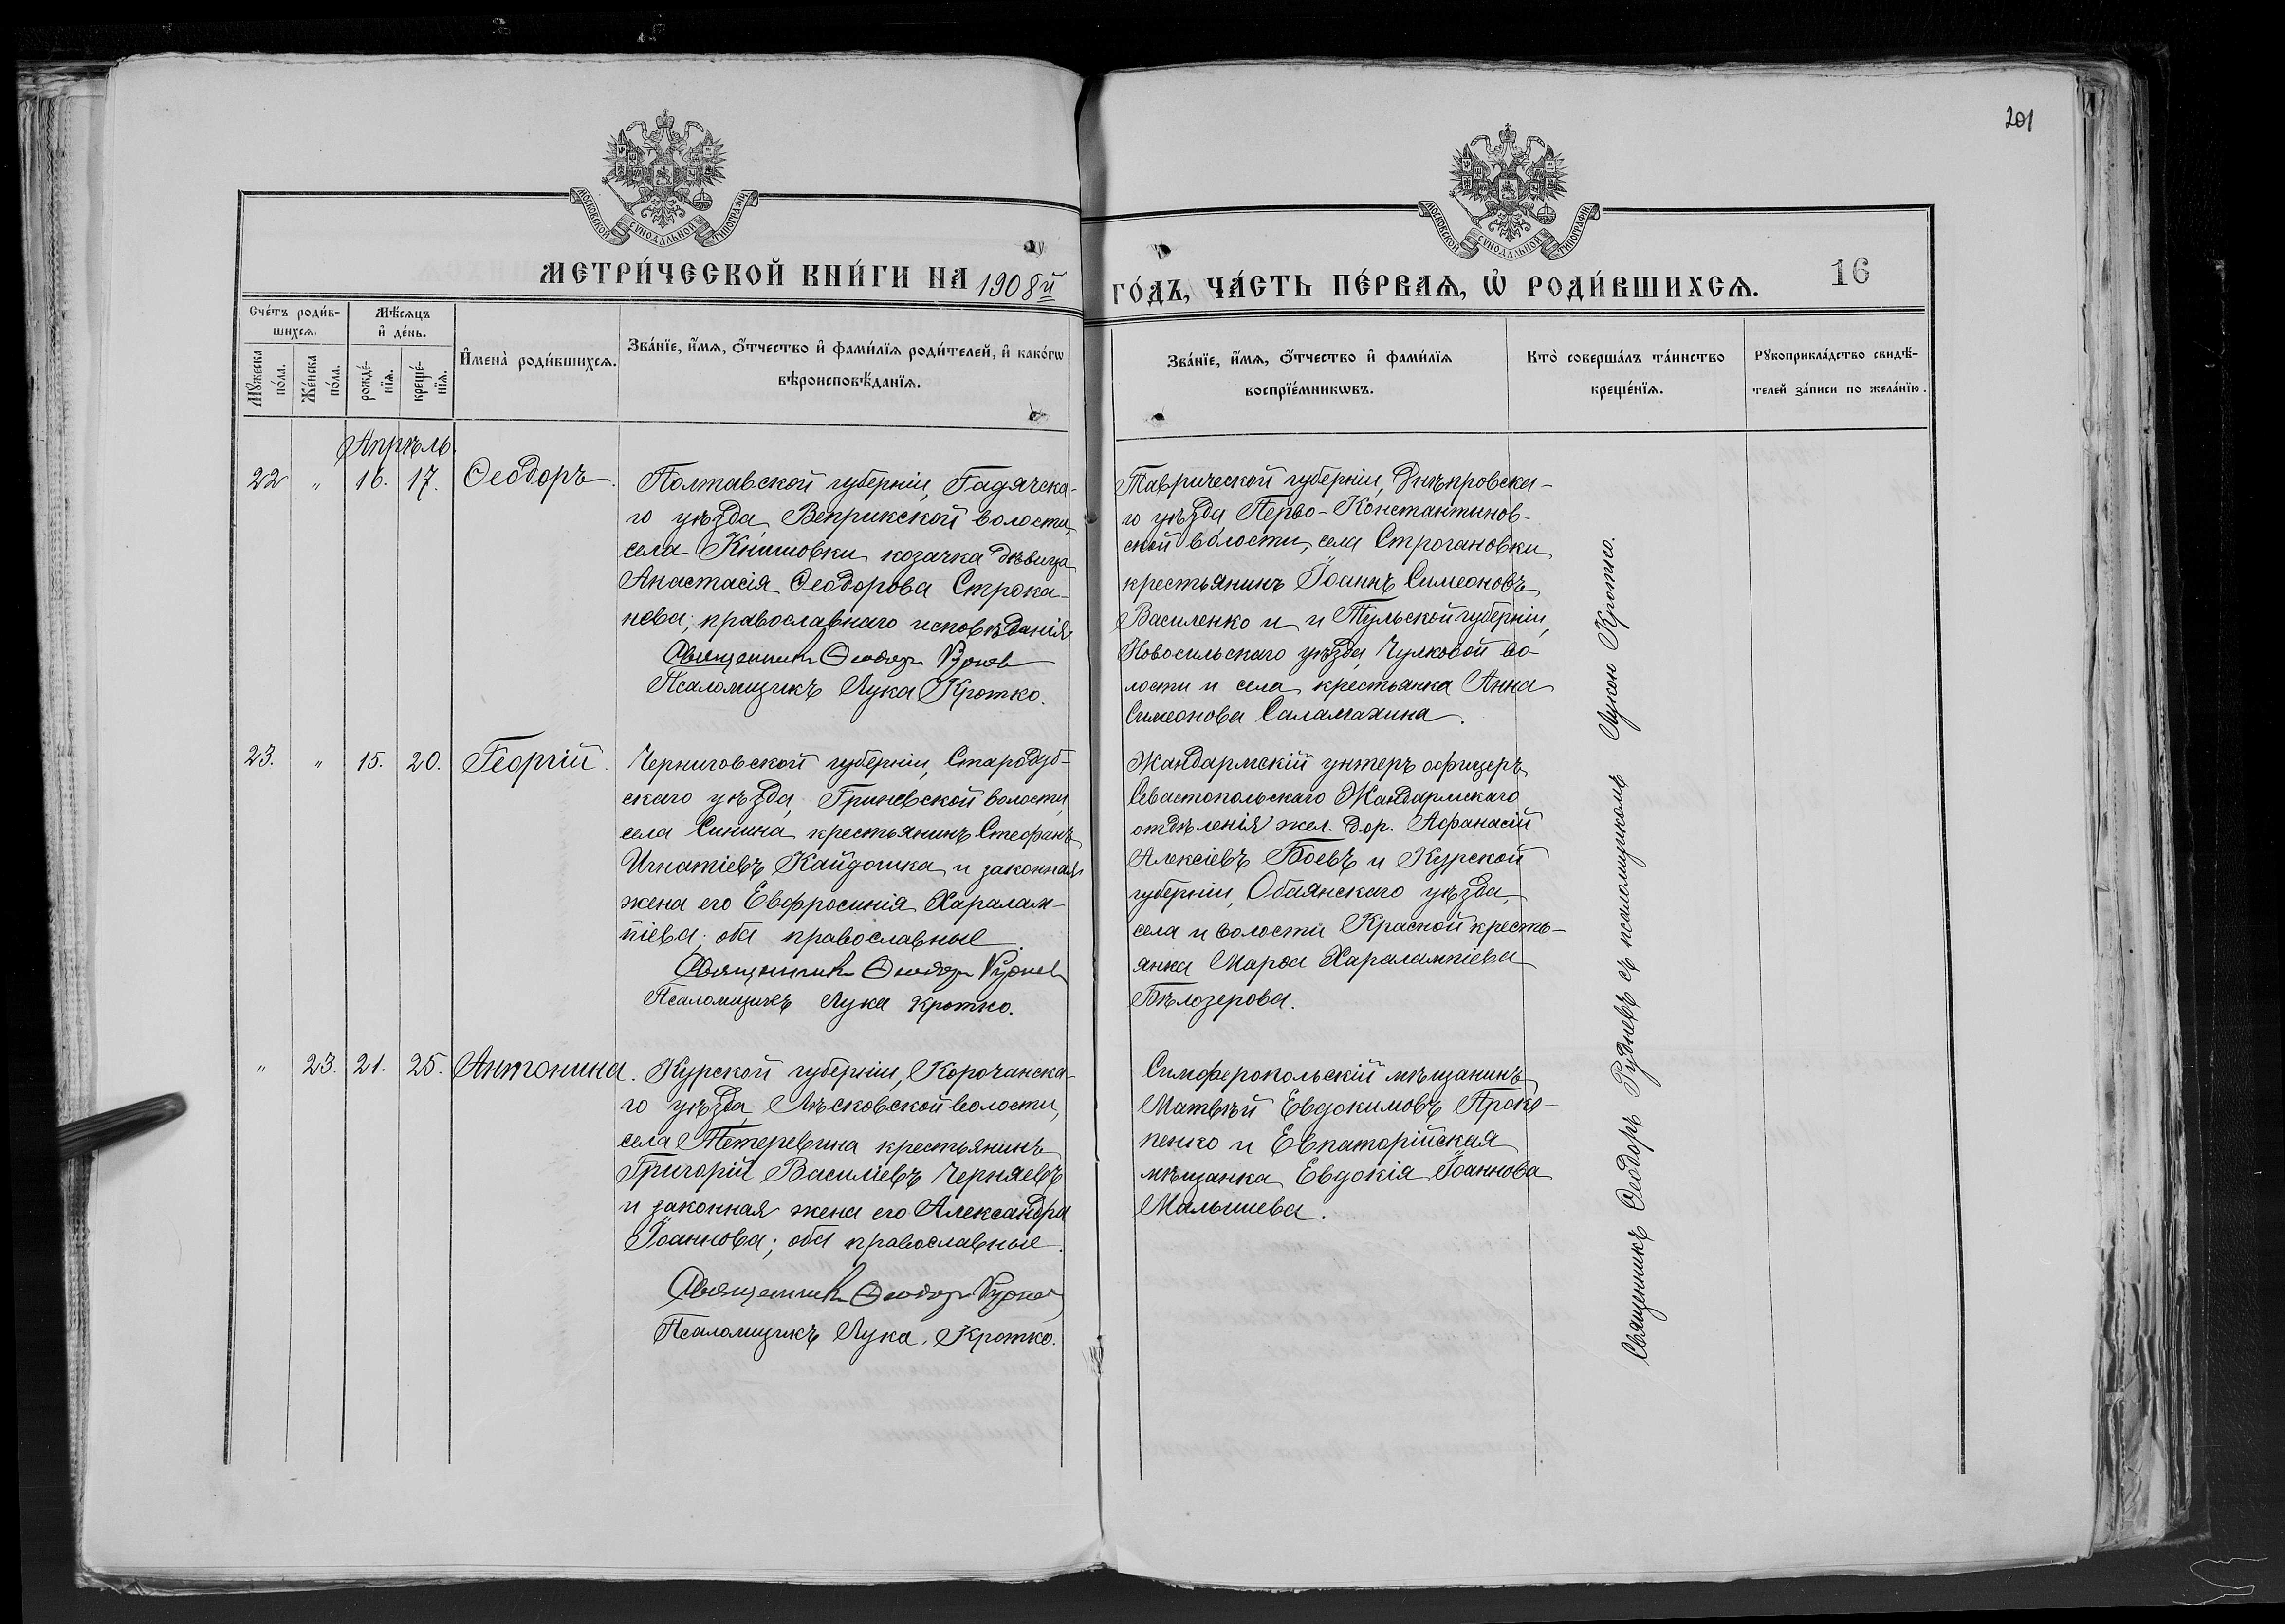 201
МОСКОВСКОЙ СѴНОДАЛЬНОЙ ТИПОГРАФІИ
МОСКОВСКОЙ СѴНОДАЛЬНОЙ ТИПОГРАФІИ
МЕТРИ́ЧЕСКОЙ КНИ́ГИ НА 1908й
ГО́ДЪ, ЧА́СТЬ ПЕ́РВАѦ, Ѡ҆ РОДИ́ВШИХСѦ.
16
Сче́тъ роди́в-
шихсѧ.
Мꙋ́жеска
по́ла.
Же́нска
по́ла.
Мѣ́сѧцъ
и҆ де́нь.
рожде́-
нїѧ.
креще́-
нїѧ.
И҆мена̀ роди́вшихсѧ.
Зва́нїе, и҆́мѧ, ѻ҆́тчество и҆ фами́лїѧ роди́телей, и҆ како́гѡ
вѣроисповѣ́данїѧ.
Зва́нїе, и҆́мѧ, ѻ҆́тчество и҆ фами́лїѧ
воспрїе́мникѡвъ.
Кто̀ соверша́лъ та́инство
креще́нїѧ.
Рꙋкоприкла́дство свидѣ́-
телей за́писи по жела́нїю.
Апрѣль.
22 " 16. 17. Ѳеодоръ.
Полтавской губерніи, Гадячска-
го уѣзда, Веприкской волости,
села Книшовки козачка дѣвица
Анастасія Ѳеодорова Строка-
нева; православнаго исповѣданія
Священникъ Ѳеодоръ Руднев
Псаломщикъ Лука Кротко.
Таврической губерніи, Днѣпровска-
го уѣзда, Перво-Константинов-
ской волости, села Строгановки
крестьянинъ Іоаннъ Симеоновъ
Василенко и и Тульской губерніи,
Новосильскаго уѣзда, Чулковой во-
лости и села крестьянка Анна
Симеонова Саламахина.
23. " 15. 20. Георгій.
Черниговской губерніи, Стародуб-
скаго уѣзда, Гриневской волости,
села Синина крестьянинъ Стефанъ
Игнатіевъ Кайдошка и законная
жена его Евфросинія Харалам-
піева; оба православные.
Священникъ Ѳеодоръ Руднев
Псаломщикъ Лука Кротко.
Жандармскій унтеръ офицеръ
Севастопольскаго Жандармскаго
отдѣленія жел. дор. Афанасій
Алексіевъ Боевъ и Курской
губерніи, Обаянскаго уѣзда,
села и волости Красной кресть-
янка Марфа Харалампіева
Бѣлозерова.
" 23. 21. 25. Антонина.
Курской губерніи, Корочанска-
го уѣзда, Лѣсковской волости,
села Тетеревина крестьянинъ
Григорій Василіевъ Черняевъ
и законная жена его Александра
Іоаннова; оба православные.
Священникъ Ѳеодоръ Руднев
Псаломщикъ Лука Кротко.
Симферопольскій мѣщанинъ
Матвѣй Евдокимовъ Проко-
пенко и Евпаторійская
мѣщанка Евдокія Іоаннова
Малышева.
Священникъ Ѳеодоръ Рудневъ съ псаломщикомъ Лукою Кротко.